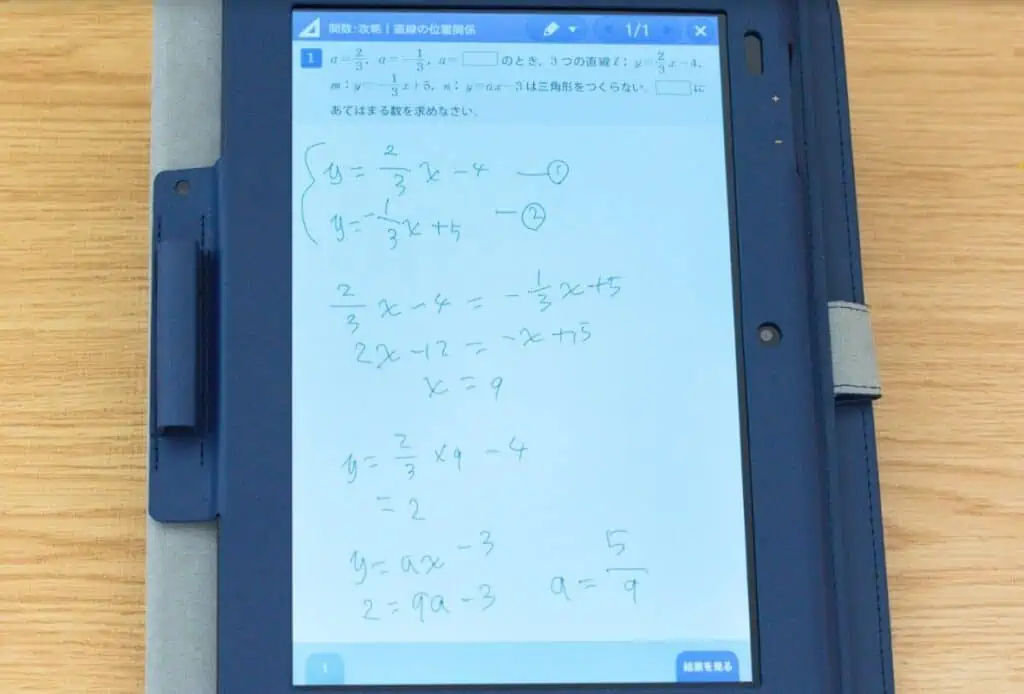 関数:攻略 | 直線の位置関係 1/1 ×
1 a=2/3, a=-1/3, a=□のとき、3つの直線ℓ: y=2/3x-4,
m: y=-1/3x+5, n: y=ax-3は三角形をつくらない。□に
あてはまる数を求めなさい。
y=2/3x-4 —①
y=-1/3x+5 —②
2/3x-4=-1/3x+5
2x-12=-x+15
x=9
y=2/3×9-4
=2
y=ax-3
2=9a-3 a=5/9
1 結果を見る